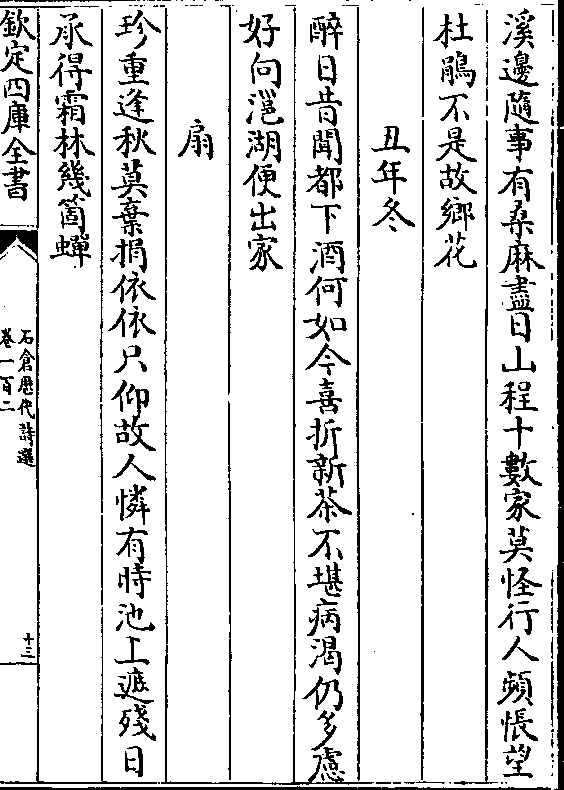 溪邊隨事有桑麻盡日山程十數家莫怪行人頻悵望
杜鵑不是故鄉花
丑年冬
醉日昔聞都下酒何如今喜折新茶不堪病渴仍多慮
好向㴩湖便出家
扇
珍重逢秋莫棄捐依依只仰故人憐有時池上遮殘日
承得霜林幾箇蟬
欽定四庫全書
石倉歷代詩選
卷一百二
十三